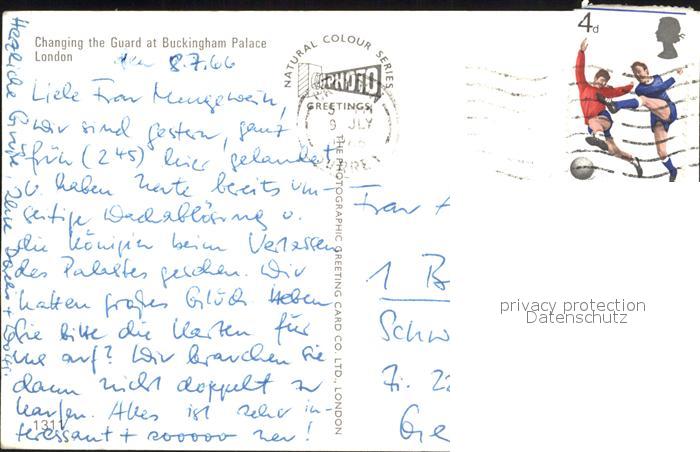 Changing the Guard at Buckingham Palace
London
8.7.66
Liebe Frau
wir sind gestern, ganz
früh (2 45) hier gelandet
u. haben heute bereits um-
seitige Wachablösung u.
die Königin beim Verlassen
des Palastes gesehen. Wir
hatten großes Glück. Heben
Sie bitte die Karten für
uns auf? Wir brauchen sie
dann nicht doppelt zu
kaufen. Alles ist sehr in-
teressant + sooooo neu!
1311
Herzliche Grüße, Ihre
NATURAL COLOUR SERIES
PHOTO
GREETINGS
THE PHOTOGRAPHIC GREETING CARD CO LTD., LONDON
9 JLY
4d
Frau
1 B
Schw
Gie
privacy protection
Datenschutz